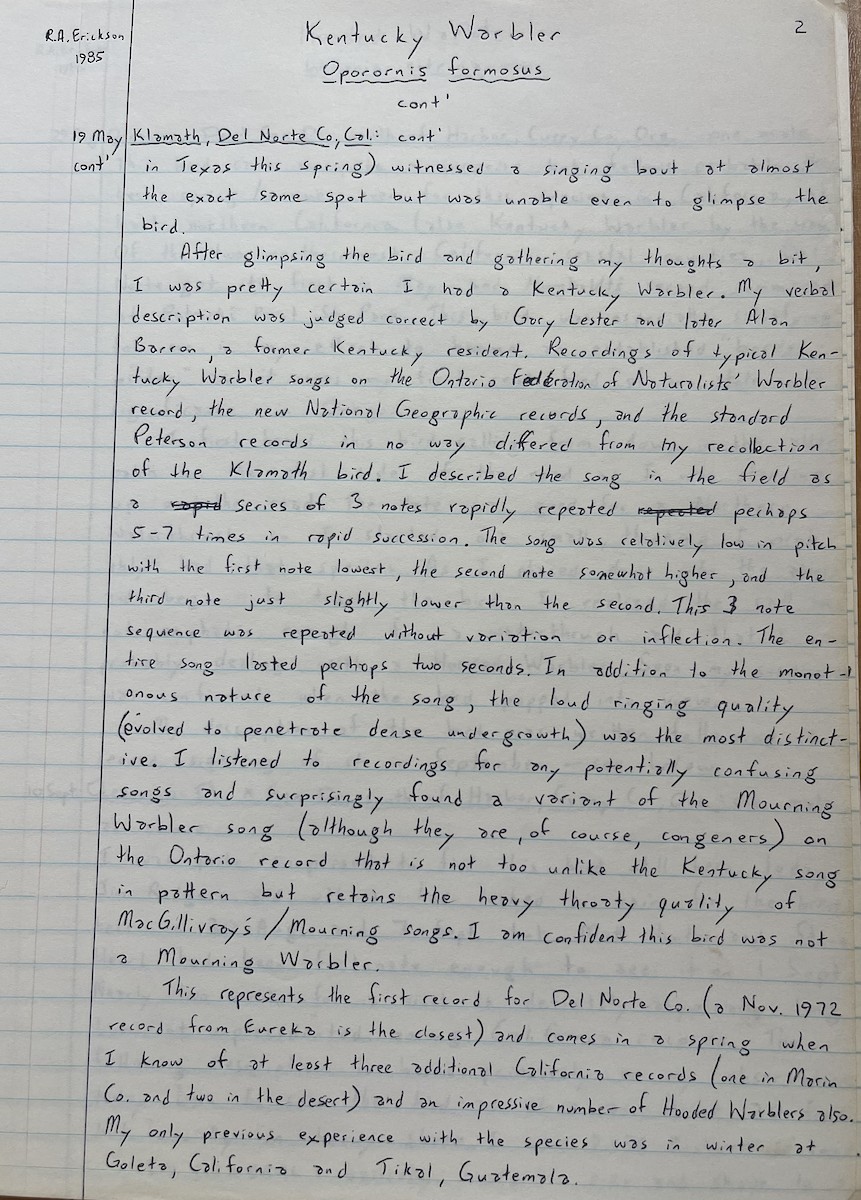 R.A. Erickson
1985
Kentucky Warbler
2
Oporornis formosus
cont'
19 May Klamath, Del Norte Co, Cal.: cont'
cont' in Texas this spring) witnessed a singing bout at almost
the exact same spot but was unable even to glimpse the
bird.
After glimpsing the bird and gathering my thoughts a bit,
I was pretty certain I had a Kentucky Warbler. My verbal
description was judged correct by Gary Lester and later Alan
Barron, a former Kentucky resident. Recordings of typical Ken-
tucky Warbler songs on the Ontario Federation of Naturalists' Warbler
record, the new National Geographic records, and the standard
Peterson records in no way differed from my recollection
of the Klamath bird. I described the song in the field as
a rapid series of 3 notes rapidly repeated repeated perhaps
5-7 times in rapid succession. The song was relatively low in pitch
with the first note lowest, the second note somewhat higher, and the
third note just slightly lower than the second. This 3 note
sequence was repeated without variation or inflection. The en-
tire song lasted perhaps two seconds. In addition to the monot-
onous nature of the song, the loud ringing quality
(evolved to penetrate dense undergrowth) was the most distinct-
ive. I listened to recordings for any potentially confusing
songs and surprisingly found a variant of the Mourning
Warbler song (although they are, of course, congeners) on
the Ontario record that is not too unlike the Kentucky song
in pattern but retains the heavy throaty quality of
MacGillivray's/Mourning songs. I am confident this bird was not
a Mourning Warbler.
This represents the first record for Del Norte Co. (a Nov. 1972
record from Eureka is the closest) and comes in a spring when
I know of at least three additional California records (one in Marin
Co. and two in the desert) and an impressive number of Hooded Warblers also.
My only previous experience with the species was in winter at
Goleta, California and Tikal, Guatemala.